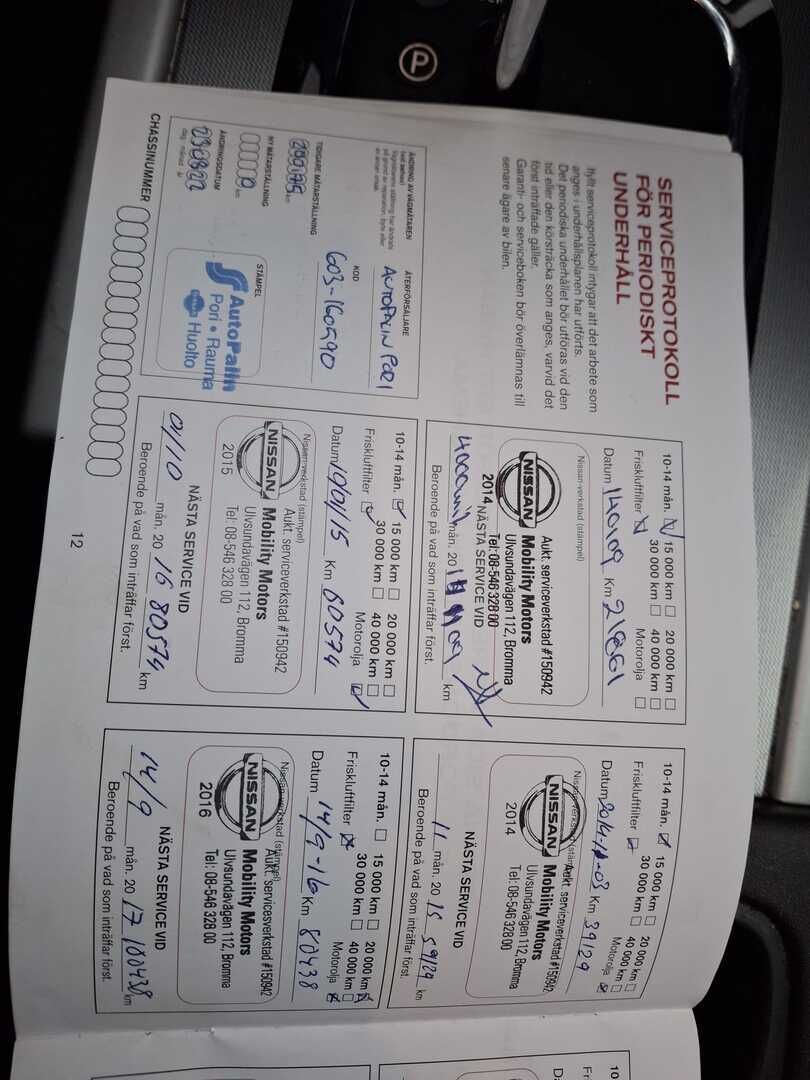 P
SERVICEPROTOKOLL
FÖR PERIODISKT
UNDERHÅLL
Ifyllt serviceprotokoll intygar att det arbete som
anges i underhållsplanen har utförts.
Det periodiska underhållet bör utföras vid den
tid eller den körsträcka som anges, varvid det
först inträffade gäller.
Garanti- och serviceboken bör överlämnas till
senare ägare av bilen.
ÄNDRING AV VÄGMÄTAREN
ÅTERFÖRSÄLJARE
AUTOPALIN PORI
TIDIGARE MÄTARSTÄLLNING
km
KOD
603-160590
NY MÄTARSTÄLLNING
km
ÄNDRINGSDATUM
230822
dag månad år
STÄMPEL
AutoPalin
Pori • Rauma
Huolto
CHASSINUMMER
10-14 mån. 15 000 km 20 000 km
30 000 km 40 000 km
Friskluftfilter Motorolja
Datum 140109 Km 21861
Nissan-verkstad (stämpel)
NISSAN
Aukt. serviceverkstad #150942
Mobility Motors
Ulvsundavägen 112, Bromma
Tel: 08-546 328 00
2014
NÄSTA SERVICE VID
mån. 20 km
Beroende på vad som inträffar först.
10-14 mån. 15 000 km 20 000 km
30 000 km 40 000 km
Friskluftfilter Motorolja
Datum Km 39129
Nissan-verkstad (stämpel)
NISSAN
Aukt. serviceverkstad #150942
Mobility Motors
Ulvsundavägen 112, Bromma
Tel: 08-546 328 00
2014
NÄSTA SERVICE VID
11 mån. 20 15 59129 km
Beroende på vad som inträffar först.
10-14 mån. 15 000 km 20 000 km
30 000 km 40 000 km
Friskluftfilter Motorolja
Datum Km 60574
Nissan-verkstad (stämpel)
NISSAN
Aukt. serviceverkstad #150942
Mobility Motors
Ulvsundavägen 112, Bromma
Tel: 08-546 328 00
2015
NÄSTA SERVICE VID
01/10 mån. 20 16 80574 km
Beroende på vad som inträffar först.
10-14 mån. 15 000 km 20 000 km
30 000 km 40 000 km
Friskluftfilter Motorolja
Datum 14/9-16 Km 80438
Nissan-verkstad (stämpel)
NISSAN
Aukt. servicesverkstad #150942
Mobility Motors
Ulvsundavägen 112, Bromma
Tel: 08-546 328 00
2016
NÄSTA SERVICE VID
14/9 mån. 20 17 100438 km
Beroende på vad som inträffar först.
12